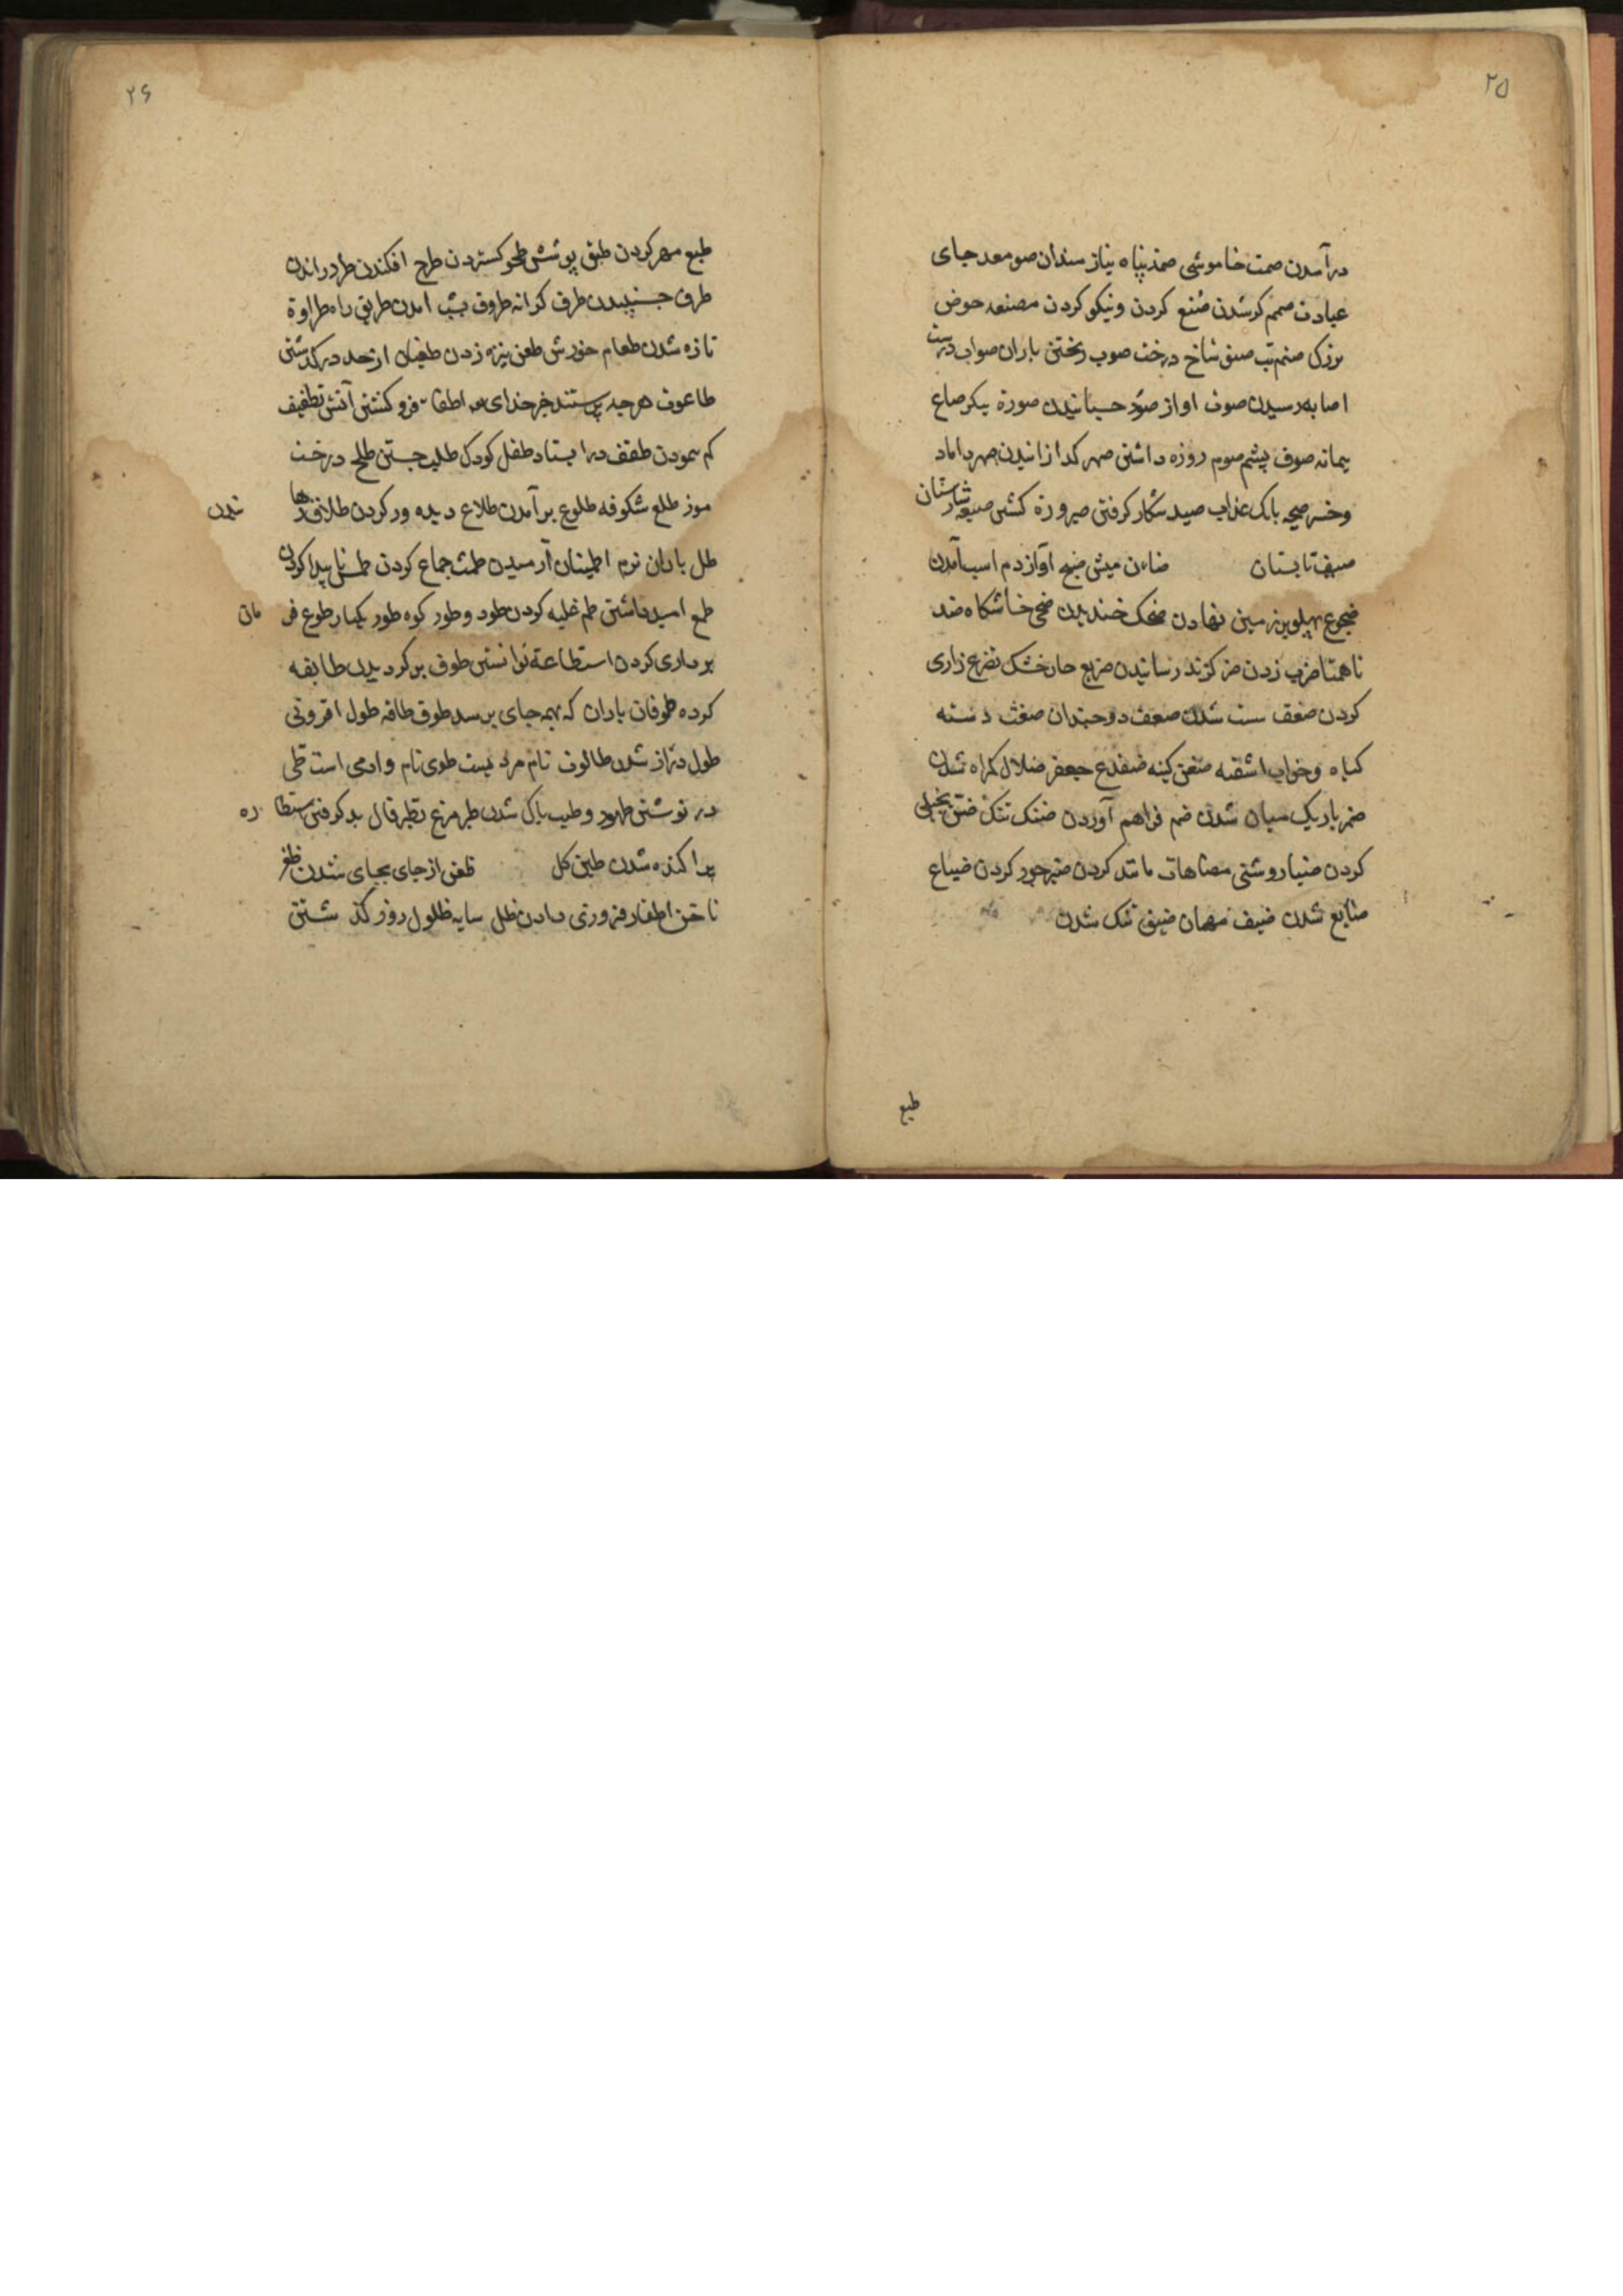 ۲۵
درآمدن صمت خاموشی صمد پناه نیاز مندان صومعه جای
عبادت صمم کر شدن صُنع کردن و نیکو کردن مصنعه حوض
بزرک صنم بت صنو شاخ درخت صوب ریختن باران صواب درست
اصابه رسیدن صوت اواز صور صورة پیکر صاع
پیمانه صوف پشم صوم روزه داشتن صهر کدازانیدن صهر داماد
وخسر صیحه بانک عذاب صید شکار کرفتن صیرورة کشتن صیصه شارستان
صیف تابستان ضان میش ضبح آواز دم اسب آمدن
ضجوع پهلو بزمین نهادن ضحک خندیدن ضحی خاشکاه ضد
ناهمتا ضرب زدن ضر کزند رسانیدن ضریع خار خشک تضرع زاری
کردن ضعف سست شدن ضعف دوجندان ضغث دسته
کیاه وخواب اشفته ضغن کینه ضفدع ضلال کمراه شدن
ضمر باریک میان شدن ضم فراهم آوردن ضنک تنک ضن بخیلی
کردن ضیا روشنی مضاهات مانند کردن ضیر جور کردن ضیاع
ضایع شدن ضیف مهمان ضیق تنک شدن
طبع
۲۶
طبع مهر کردن طبق پوشش طحو کستردن طرح افکندن طرد راندن
طرف جنبیدن طرف کرانه طروق بشب امدن طریق راه طراوة
تازه شدن طعام خورش طعن نیزه زدن طغیان از حد درکذشتن
طاغوت هرجه پرستند جز خدای اطفاء فرو کشتن آتش تطفیف
کم پیمودن طفق در ایستاد طفل کودک طلب جستن طلح درخت
موز طلع شکوفه طلوع برآمدن طلاع دیده ور کردن طلاق رها شدن
طل باران نرم اطمینان آرمیدن طمث جماع کردن طمس ناپیدا کردن
طمع امید داشتن طم غلبه کردن طود و طور کوه طور یکبار طوع فر مان
برداری کردن استطاعة توانستن طوف برکردیدن طایفه
کرده طوفان باران که بهمه جای برسد طوق طاقه طول افزونی
طول دراز شدن طالوت نام مرد یست طوی نام وادی است طی
در نوشتن طهور و طیب پاک شدن طیر مرغ تطیر فال بد کرفتن استطا ره
پراکنده شدن طین کل ظعن از جای بجای شدن ظفر
ناخن اظفار فیروزی دادن ظل سایه ظلول روز کذ شتن